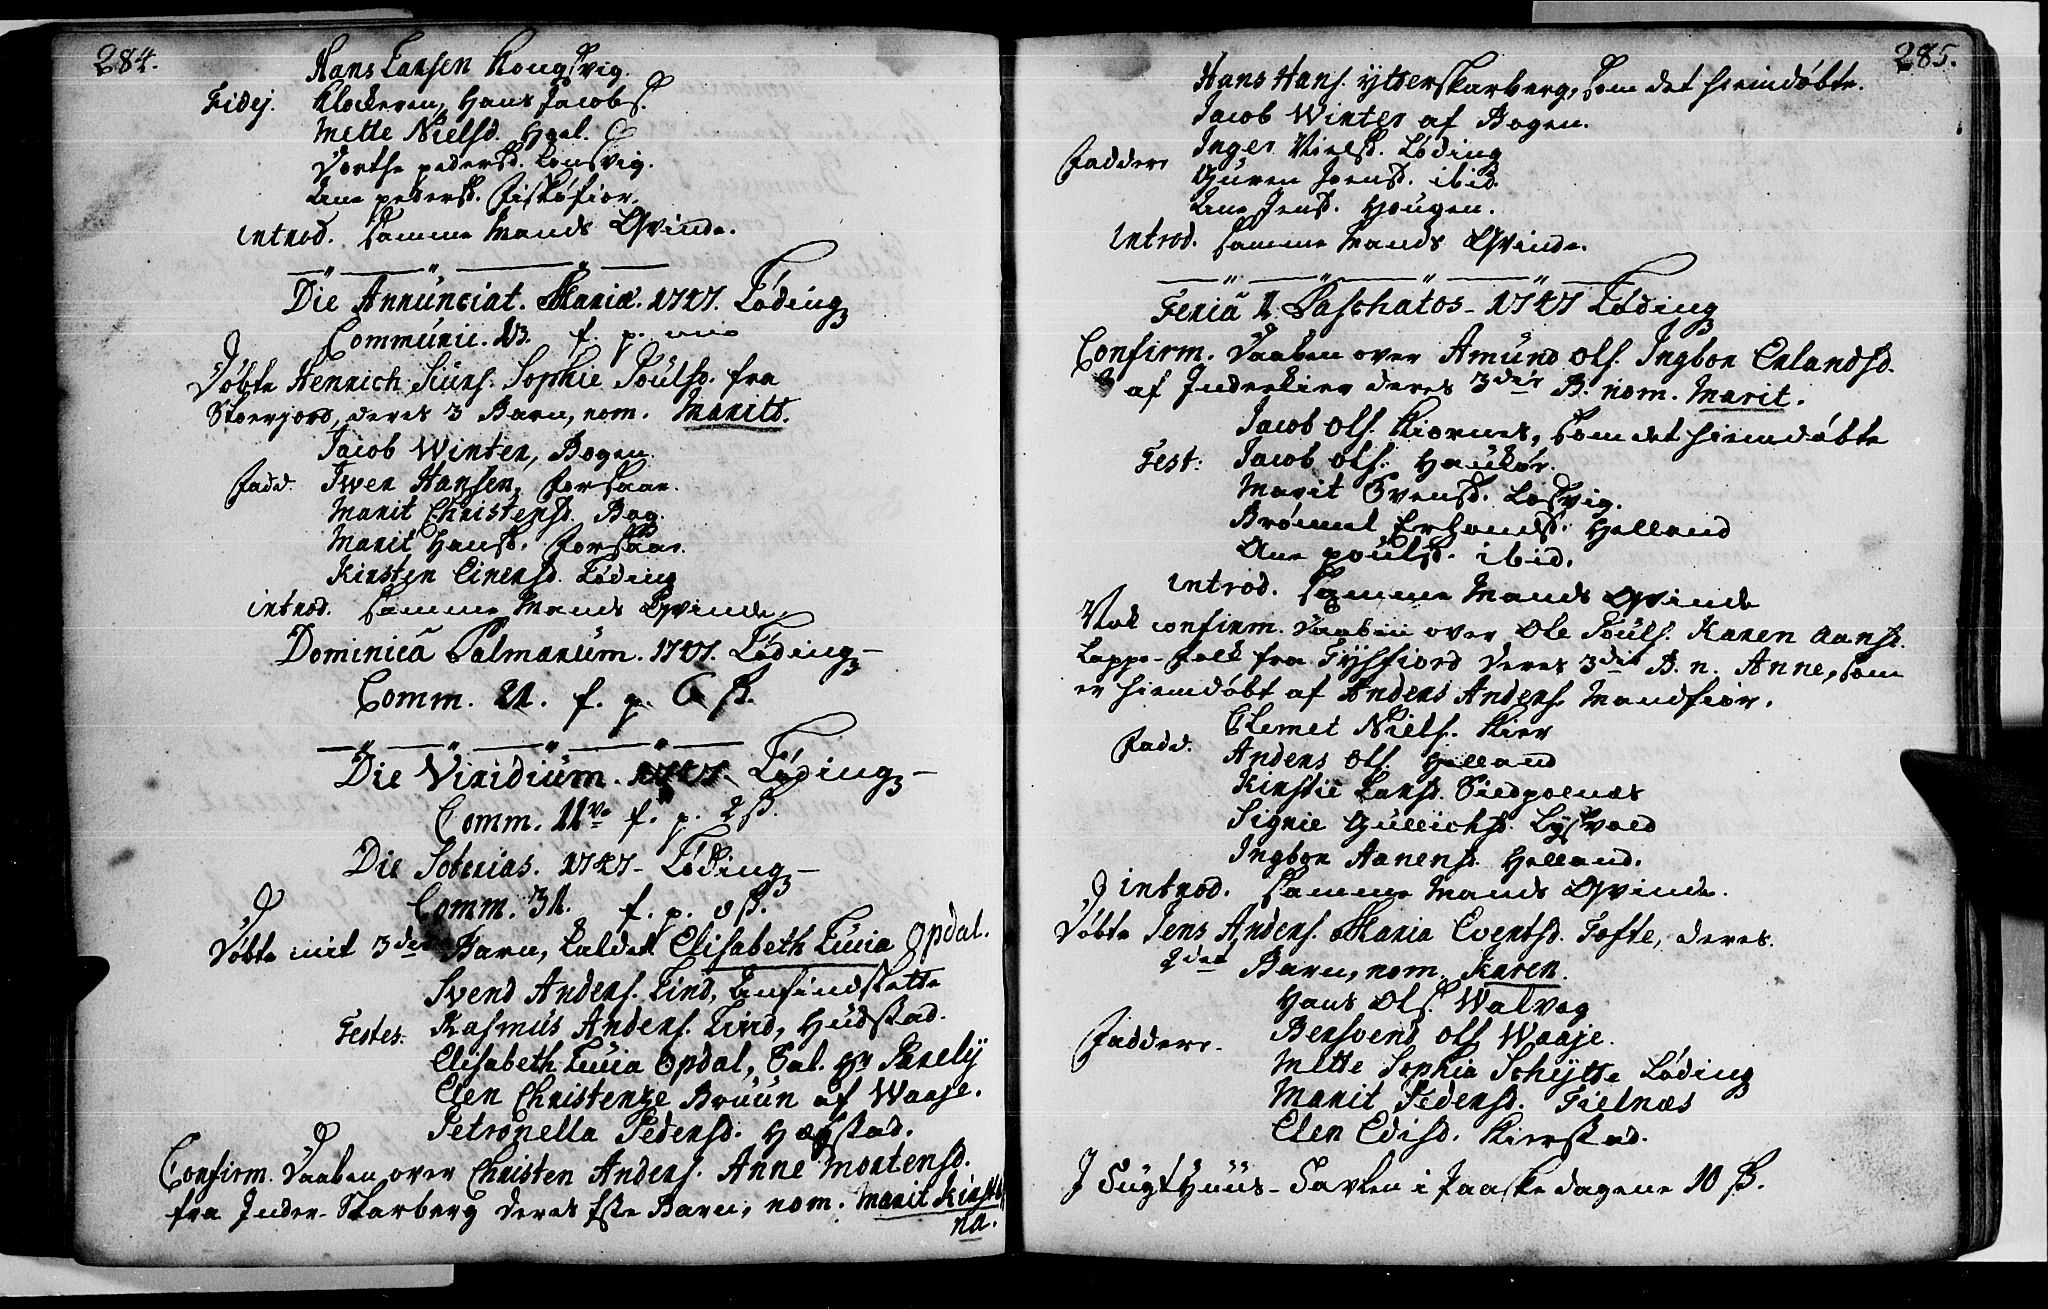 284.
Hans Larsen Kongsvig.
Fidej. Klockeren, Hans Jacobs.
Mette Nielsd. Hoel.
Dorthe pedersd. Lensvig.
Ane pedersd. Fiskøfior.
introd. samme Mands Qvinde.
Die Annunciat. Mariæ. 1747. Løding
Communic. 13. f. p.
Døbte Henrich Siurs. Sophie Poulsd. fra
Stoerjord, deres 3 Barn, nom. Maritt.
Jacob Winter, Bogen.
Fadd. Iwer Hansen, Forsaae.
Marit Christensd. Bog.
Marit Hansd. Forsaae.
Kirsten Einersd. Løding
introd. samme Mands Qvinde
Dominica Palmarum. 1747. Løding
Comm. 21. f. p. 6 ß.
Die Viridium. 1747. Løding
Comm. 11 f. p. 2 ß.
Die Soterias. 1747. Løding
Comm. 31. f. p. 0 ß.
Døbte mit 3die Barn, kaldet Elisabeth Lucia Opdal.
Svend Anders. Lind, Anfindslette
Testes. Rasmus Anders. Lind, Hudstad.
Elisabeth Lucia Opdal, Sal. Hr Parelij
Elen Christenze Bruun af Waaje.
Petronella Pedersd. Hægstad.
Confirm. Daaben over Christen Anders. Anne Mortensd.
fra Inder-Skarberg deres 1ste Barn, nom. Marit Kirsti
na.
285.
Hans Hans. Ytterskarberg, som det hiemdøbte.
Jacob Winter af Bogen.
Faddere Inger Nielsd. Løding
Guren Joensd. ibid.
Ane Jensd. Hougen.
introd. samme Mands Qvinde.
Feria 1. Paschatos. 1747 Løding
Confirm. Daaben over Amund Ols. Ingbor Erlandsd.
af Inderkier deres 3die B. nom. Marit.
Jacob Ols. Kiornes, som det hiemdøbte
Test: Jacob Ols. Haukør.
Marit Svensd. Losvig.
Brømel Erlandsd. Helland
Ane poulsd. ibid.
introd. samme Mands Qvinde
Nok confirm. Daaben over Ole Pouls. Karen Aansd.
Lappe-folk fra Tysfiord deres 3die B. n. Anne, som
er hiemdøbt af Anders Anders. Mandfior.
Clemet Niels. Kier
Fadd. Anders Ols. Helland
Kirstie Larsd. Siedpolnæs
Signie Gullichsd. Lysvold
Ingbor Aanensd. Helland.
introd. samme Mands Qvinde.
Døbte Jens Anders. Maria Evertsd. Tofte, deres
2den Barn, nom. Karen.
Hans Ols. Walvog
Faddere. Bersvend Ols. Waaje.
Mette Sophia Schytte Løding
Marit Pedersd. Fielnæs
Elen Edisd. Kierstad.
J Tugthuus-Tavlen i Paaske dagene 10 ß.